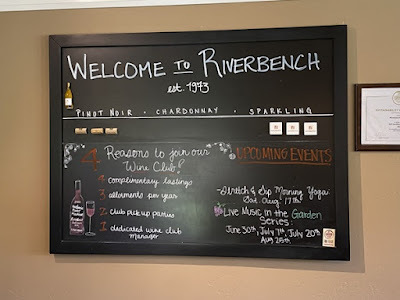 WELCOME TO RIVERBENCH
est. 1973
PINOT NOIR · CHARDONNAY · SPARKLING
4 Reasons to join our
Wine Club!
4 complimentary tastings
3 allotments per year
2 club pick up parties
1 dedicated wine club
manager
UPCOMING EVENTS
Stretch & Sip Morning Yoga:
Sat. Aug. 17th
Live Music in the Garden
Series:
June 30th, July 7th, July 20th
Aug 25th